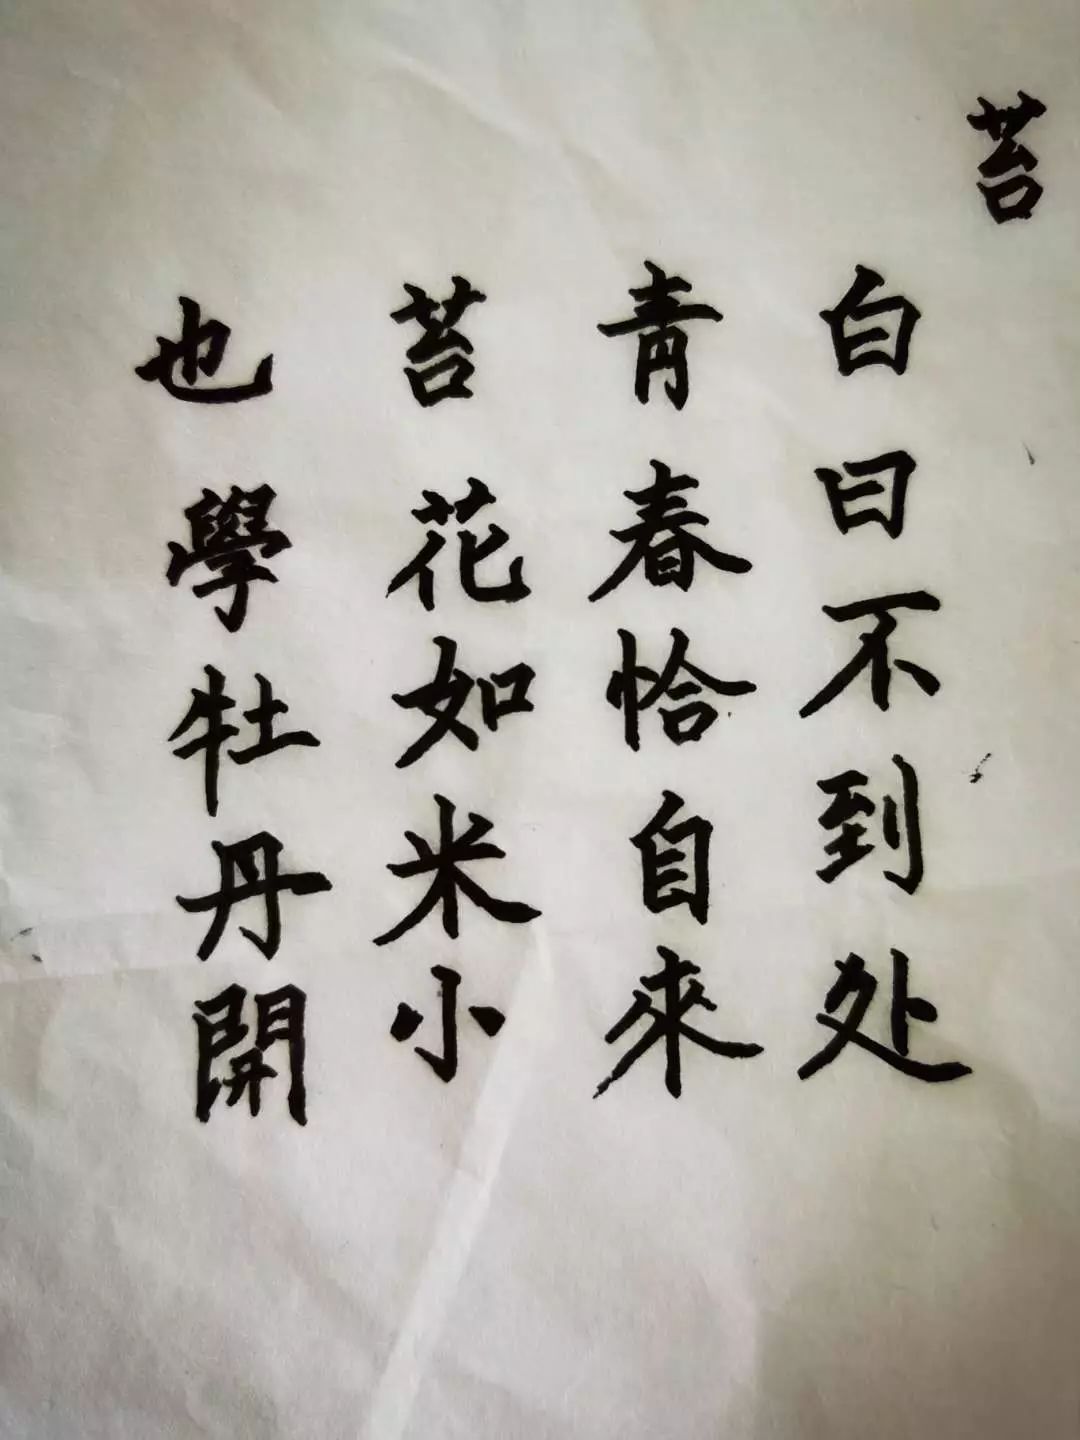 苔
白日不到处
青春恰自來
苔花如米小
也學牡丹開